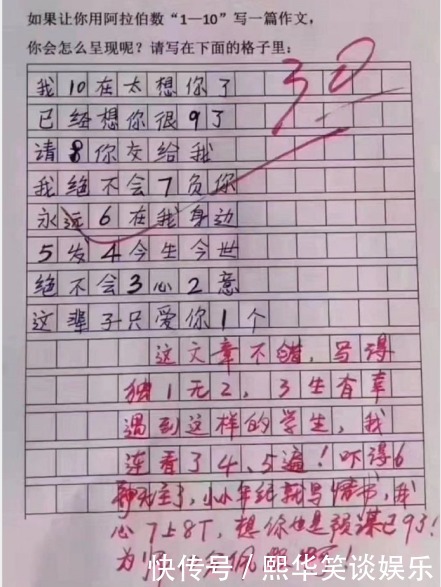 如果让你用阿拉伯数“1—10”写一篇作文，
你会怎么呈现呢？请写在下面的格子里：
30
我10在太想你了
已经想你很9了
请8你交给我
我绝不会7负你
永远6在我身边
5发4今生今世
绝不会3心2意
这辈子只爱你1个
这文章不错，写得
独1无2，3生有幸
遇到这样的学生，我
连看了4、5遍！吓得6
神为主了，小小年纪就写情书，我
心7上8下，想你也是预谋已9了！
为
快传号／熙华笑谈娱乐